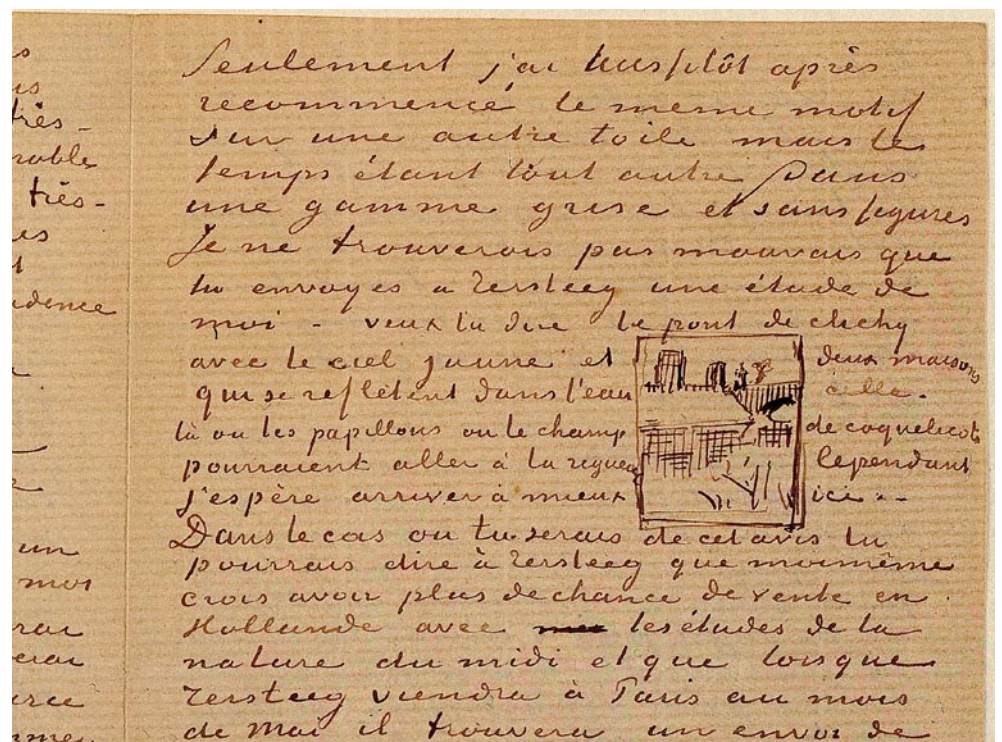 us
très-
rable
très-
es
t
adence
un
mot
rai
erai
urce
Seulement j'ai aussitôt après
recommencé le meme motif
sur une autre toile mais le
temps étant tout autre Dans
une gamme grise et sans figures
Je ne trouverais pas mauvais que
tu envoyes a Tersteeg une étude de
moi - veux tu dire le pont de clichy
avec le ciel jaune et deux maisons
qui se reflètent dans l'eau celle-
là ou les papillons ou le champ de coquelicots
pourraient aller à la rigueur Cependant
j'espère arriver à mieux ici.-
Dans le cas ou tu serais de cet avis tu
pourrais dire à Tersteeg que moimême
crois avoir plus de chance de vente en
Hollande avec mes les études de la
nature du midi et que lorsque
Tersteeg viendra à Paris au mois
de Mai il trouvera un envoi de